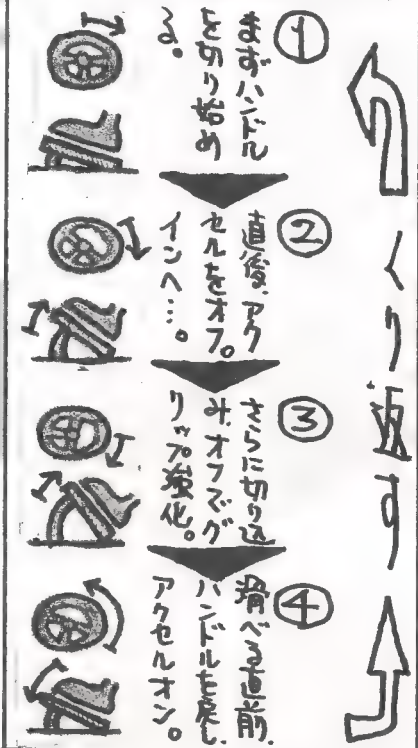 くり返す
①
まずハンドル
を切り始め
る。
②
直後、アク
セルをオフ。
インへ…。
③
さらに切り込
み、オフでグ
リップ強化。
④
滑べる直前、
ハンドルを戻し、
アクセルオン。